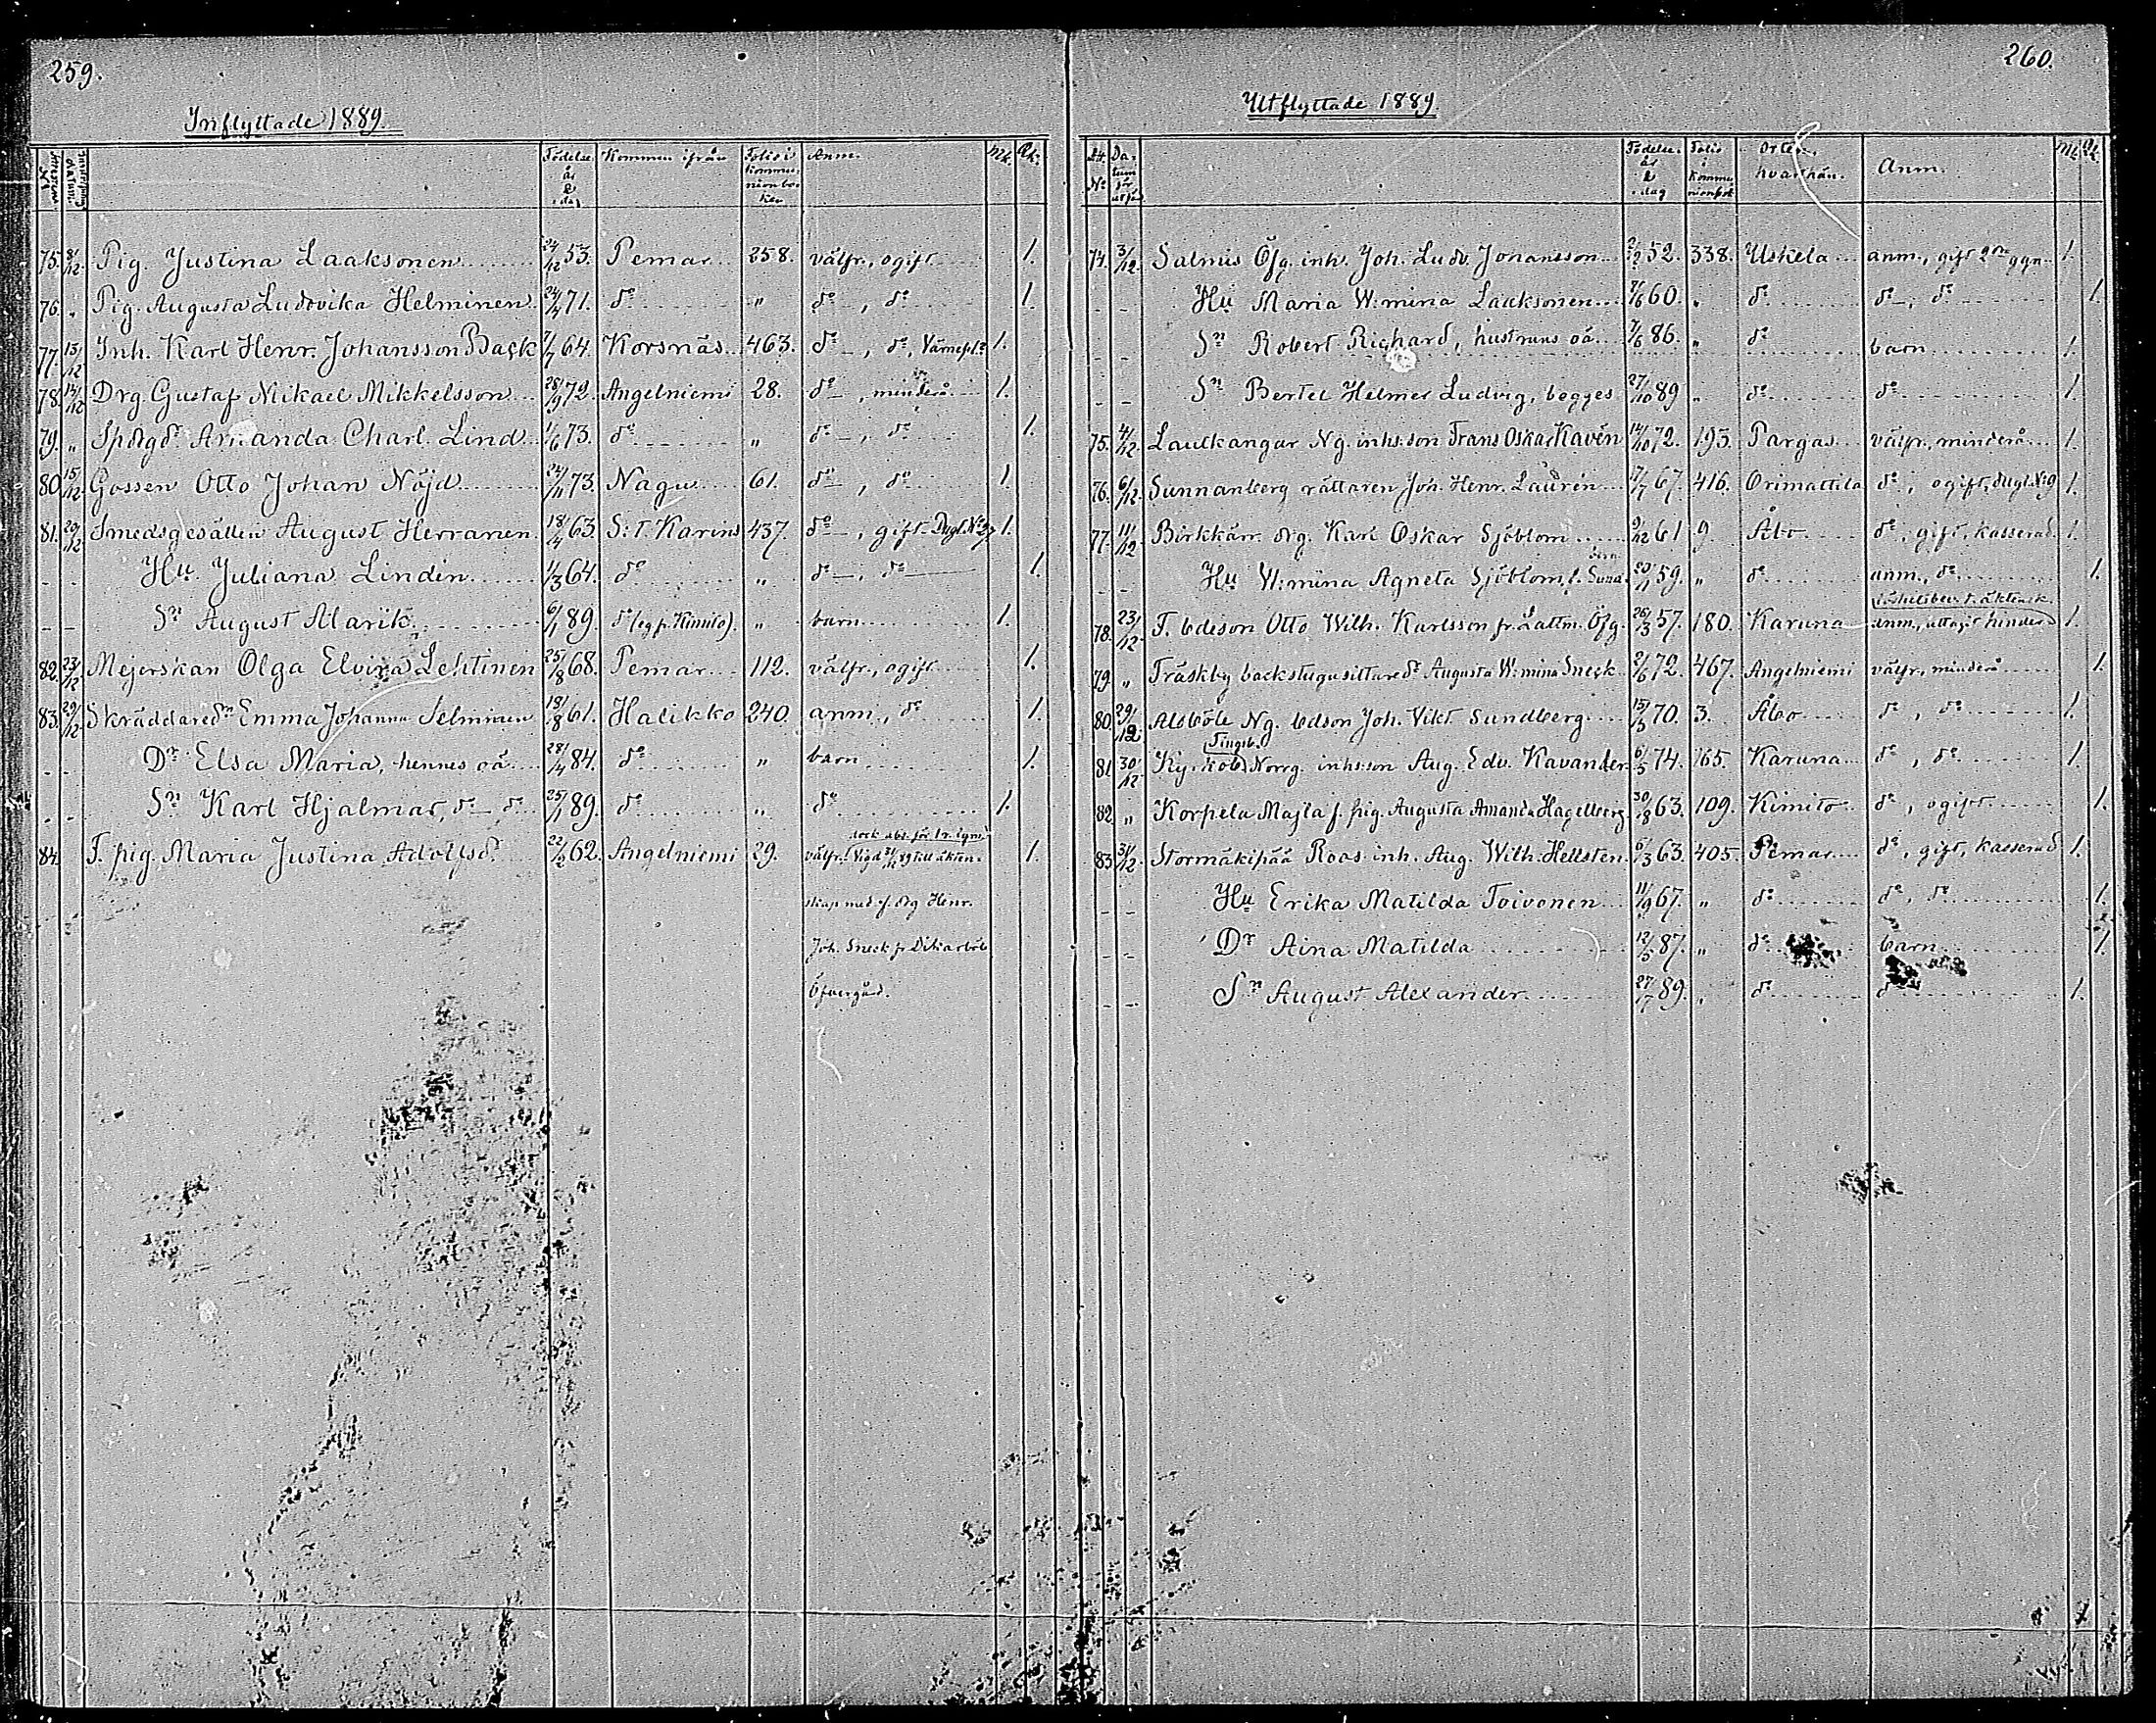 259.
Inflyttade 1889.
Födelse år & dag Kommen ifrån Folio i kommunionboken Anm. Mk. Qk.
75. 8/12 Pig. Justina Laaksonen 24/12 53. Pemar 258. välfr., ogift 1.
76. " Pig. Augusta Ludovika Helminen 24/4 71. d:o " d:o, d:o 1.
77. 13/12 Inh. Karl Henr. Johansson Back 7/7 64. Korsnäs 463. d:o, d:o, Värnepl. 1.
78. 14/12 Drg. Gustaf Mikael Mikkelsson 28/9 72. Angelniemi 28. d:o, minderå. 1.
79. " Amanda Charl. Lind 1/6 73. d:o " d:o, d:o 1.
80. 15/12 Gossen Otto Johan Nöjd 24/11 73. Nagu 61. d:o, d:o 1.
81. 20/12 Smedsgesällen August Herranen 18/4 63. S:t Karins 437. d:o, gift 1.
Hu. Juliana Lindin 1/3 64. d:o " d:o, d:o 1.
Sn August Alarik 6/1 89. d:o (eg. fr. Kimito). " barn 1.
82. 23/12 Mejerskan Olga Elvira Lehtinen 25/8 68. Pemar 112. välfr., ogift 1.
83. 29/12 Skräddared:r Emma Johanna Selminen 18/8 61. Halikko 240. anm., d:o 1.
Dr Elsa Maria, hennes oä. 28/4 84. d:o " barn 1.
Sn Karl Hjalmar, d:o, d:o 25/1 89. d:o " d:o 1.
84. F. pig. Maria Justina Adolfsd:r 22/2 62. Angelniemi 29. välfr. Vigd till äkten- 1.
skap med f. drg Henr.
Joh. Sneck fr. Dikarböle
Öfvergård.
260.
Utflyttade 1889
N:o Datum för utfl. Födelse år & dag Folio i kommunionbok Orten hvarthän. Anm. Mk. Qk.
74. 3/12. Salmis Öfg. inh. Joh. Ludv. Johansson 2/2 52. 338. Uskela anm., gift 2:n ggn 1.
Hu Maria W:mina Laaksonen 7/6 60. " d:o d:o, d:o 1.
Sn Robert Richard, hustruns oä. 7/6 86. " d:o barn 1.
Sn Bertel Helmer Ludvig, begges 27/10 89 " d:o d:o 1.
75. 4/12. Laukkangar Ng. inhs:son Frans Oskar Kavén 14/10 72. 195. Pargas välfr., minderå. 1.
76. 6/12. Sunnanberg rättaren Joh. Henr. Laurén 17/7 67. 416. Orimattila d:o, ogift, 1.
77. 11/12 Birkkärr drg. Karl Oskar Sjöblom 9/12 61 9 Åbo d:o, gift, kasserad 1.
Hu W:mina Agneta Sjöblom, f. Sund. 20/11 59. " d:o anm., d:o 1.
78. 23/12 F. bdeson Otto Wilh. Karlsson fr. Lattm. Öfg. 26/3 57. 180. Karuna anm., uttagit hinders 1.
79. " Träskby backstugusittared:r Augusta W:mina Sneck 2/6 72. 467. Angelniemi välfr., minderå 1.
80. 29/12 Alsböle Ng. bdson Joh. Vikt. Sundberg 15/3 70. 3. Åbo d:o, d:o 1.
81. 30/12 Norrg. inhs:son Aug. Edv. Kavander 6/5 74. 165. Karuna d:o, d:o 1.
82. " Korpela Majla f. pig. Augusta Amanda Hagelberg 30/8 63. 109. Kimito d:o, ogift 1.
83. 31/12. Stormäkipää Roos inh. Aug. Wilh. Hellsten 6/3 63. 405. Pemar d:o, gift, kasserad 1.
Hu Erika Matilda Toivonen 11/9 67. " d:o d:o, d:o 1.
Dr Aina Matilda 12/5 87. " d:o barn 1.
Sn August Alexander 27/7 89. " d:o d:o 1.